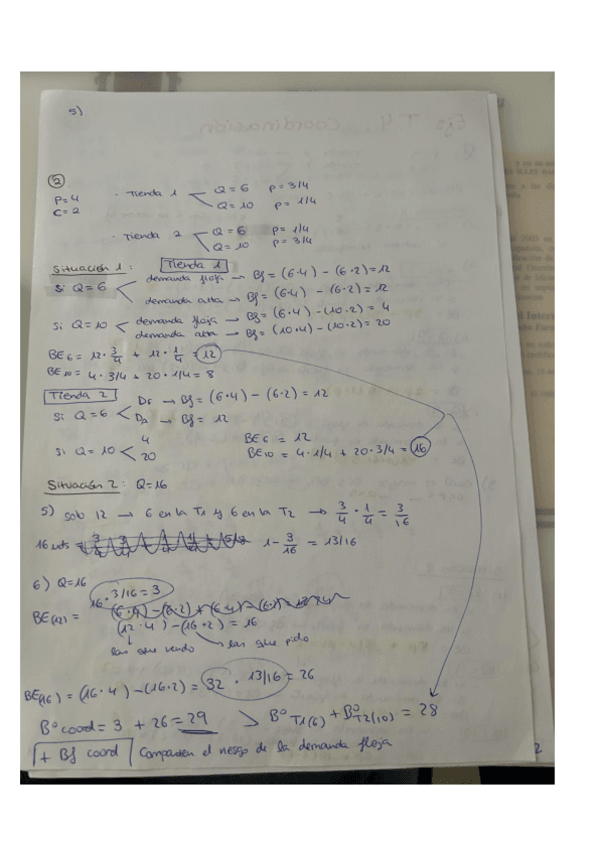 5)
②
P=4
C=2
· Tienda 1 < Q=6 p=3/4
Q=10 p=1/4
· Tienda 2 < Q=6 p=1/4
Q=10 p=3/4
Situación 1: Tienda 1
Si Q=6 < demanda floja → Bf = (6·4) - (6·2) = 12
demanda alta → Bf = (6·4) - (6·2) = 12
Si Q=10 < demanda floja → Bf = (6·4) - (10·2) = 4
demanda alta → Bf = (10·4) - (10·2) = 20
BE6 = 12·3/4 + 12·1/4 = 12
BE10 = 4·3/4 + 20·1/4 = 8
Tienda 2
Si Q=6 < Df → Bf = (6·4) - (6·2) = 12
Da → Bf = 12
Si Q=10 < 4
20
BE6 = 12
BE10 = 4·1/4 + 20·3/4 = 16
Situación 2: Q=16
5) sob 12 → 6 en la T1 y 6 en la T2 → 3/4 · 1/4 = 3/16
16 uds = 1 - 3/16 = 13/16
6) Q=16
16 · 3/16 = 3
BE(12) = (12·4) - (16·2) = 16
las que vendo las que pido
BE(16) = (16·4) - (16·2) = 32 · 13/16 = 26
Bº coord = 3 + 26 = 29 > Bº T1(6) + Bº T2(10) = 28
+ Bf coord Comparten el riesgo de la demanda floja
2